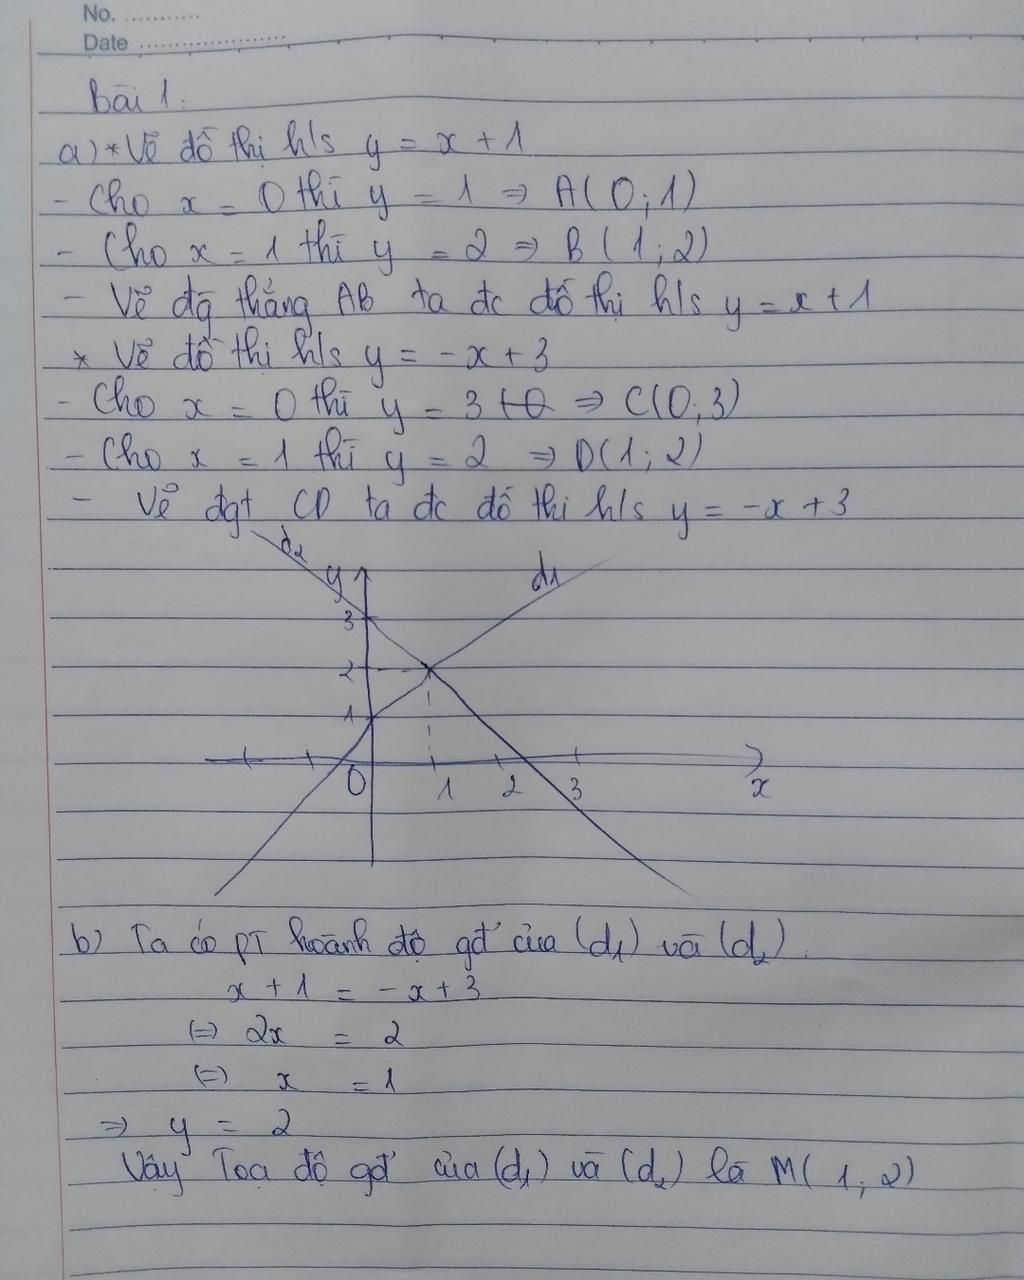 No. ...........
Date ......................
Bài 1:
a) * Vẽ đồ thị h/s y = x + 1
- Cho x = 0 thì y = 1 => A(0; 1)
- Cho x = 1 thì y = 2 => B(1; 2)
- Vẽ đg thẳng AB ta đc đồ thị h/s y = x + 1
* Vẽ đồ thị h/s y = -x + 3
- Cho x = 0 thì y = 3 => C(0; 3)
- Cho x = 1 thì y = 2 => D(1; 2)
- Vẽ đgt CD ta đc đồ thi h/s y = -x + 3
d2
y
d1
3
2
1
O 1 2 3 x
b) Ta có PT hoành độ gđ' của (d1) và (d2)
x + 1 = -x + 3
(=) 2x = 2
(=) x = 1
=> y = 2
Vậy Toạ độ gđ' của (d1) và (d2) là M(1; 2)